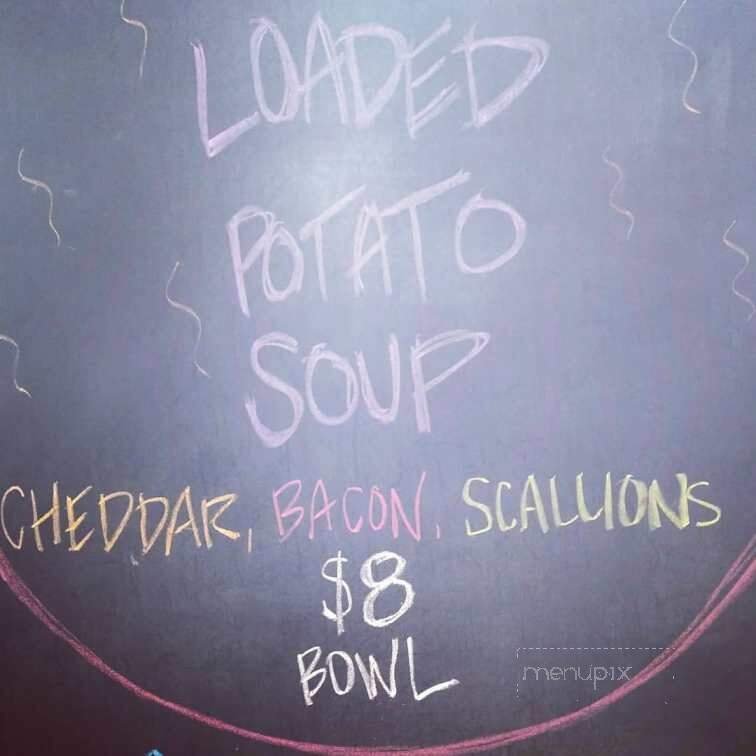 LOADED
POTATO
SOUP
CHEDDAR, BACON, SCALLIONS
$8
BOWL
menupix